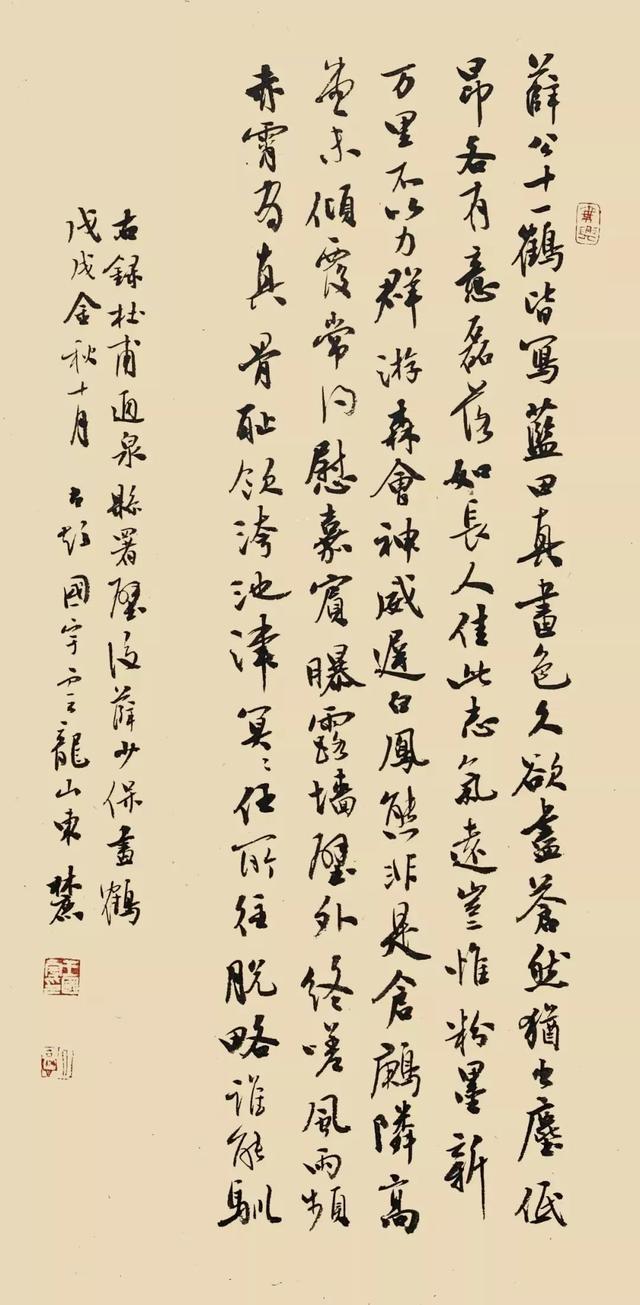 薛公十一鶴皆寫藍田真畫色久欲盡蒼然猶出塵低
昂各有意磊落如長人佳此志氣遠豈惟粉墨新
万里不以力群游森會神威遲白鳳態非是倉鶊隣高
堂未傾覆常得慰嘉賓曝露墙壁外終嗟風雨頻
赤霄有真骨恥飲洿池津冥々任所往脫略誰能馴
右録杜甫通泉縣署壁後薛少保畫鶴
戊戌金秋十月古彭國宇雲龍山東麓